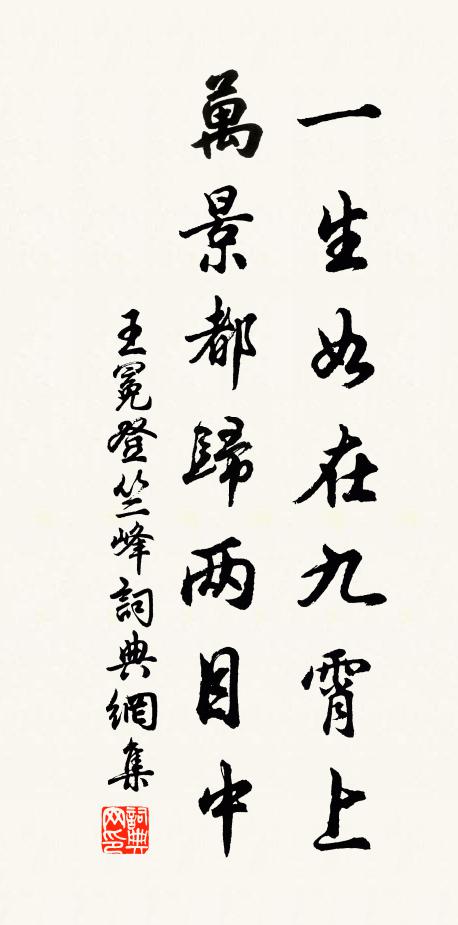 一生如在九霄上
萬景都歸两目中
王冕登竺峰詞典網集
詞典网印